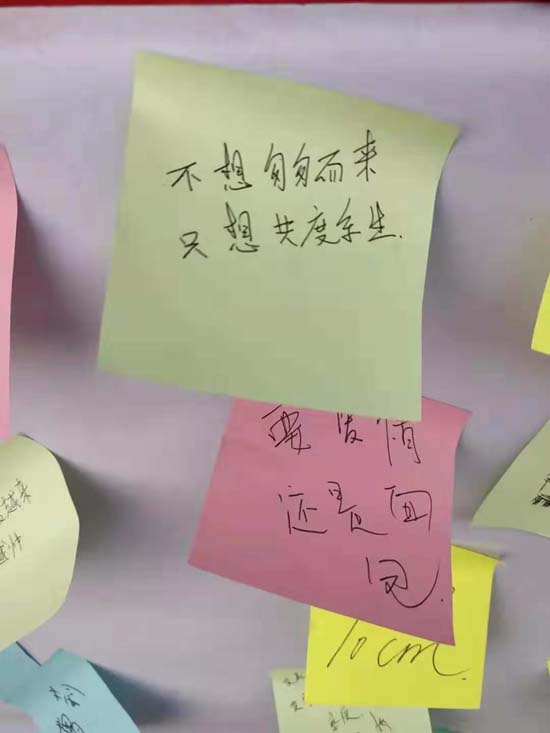 不想匆匆而来
只想共度余生.
要爱情
还是面
包.
10cm.
越来